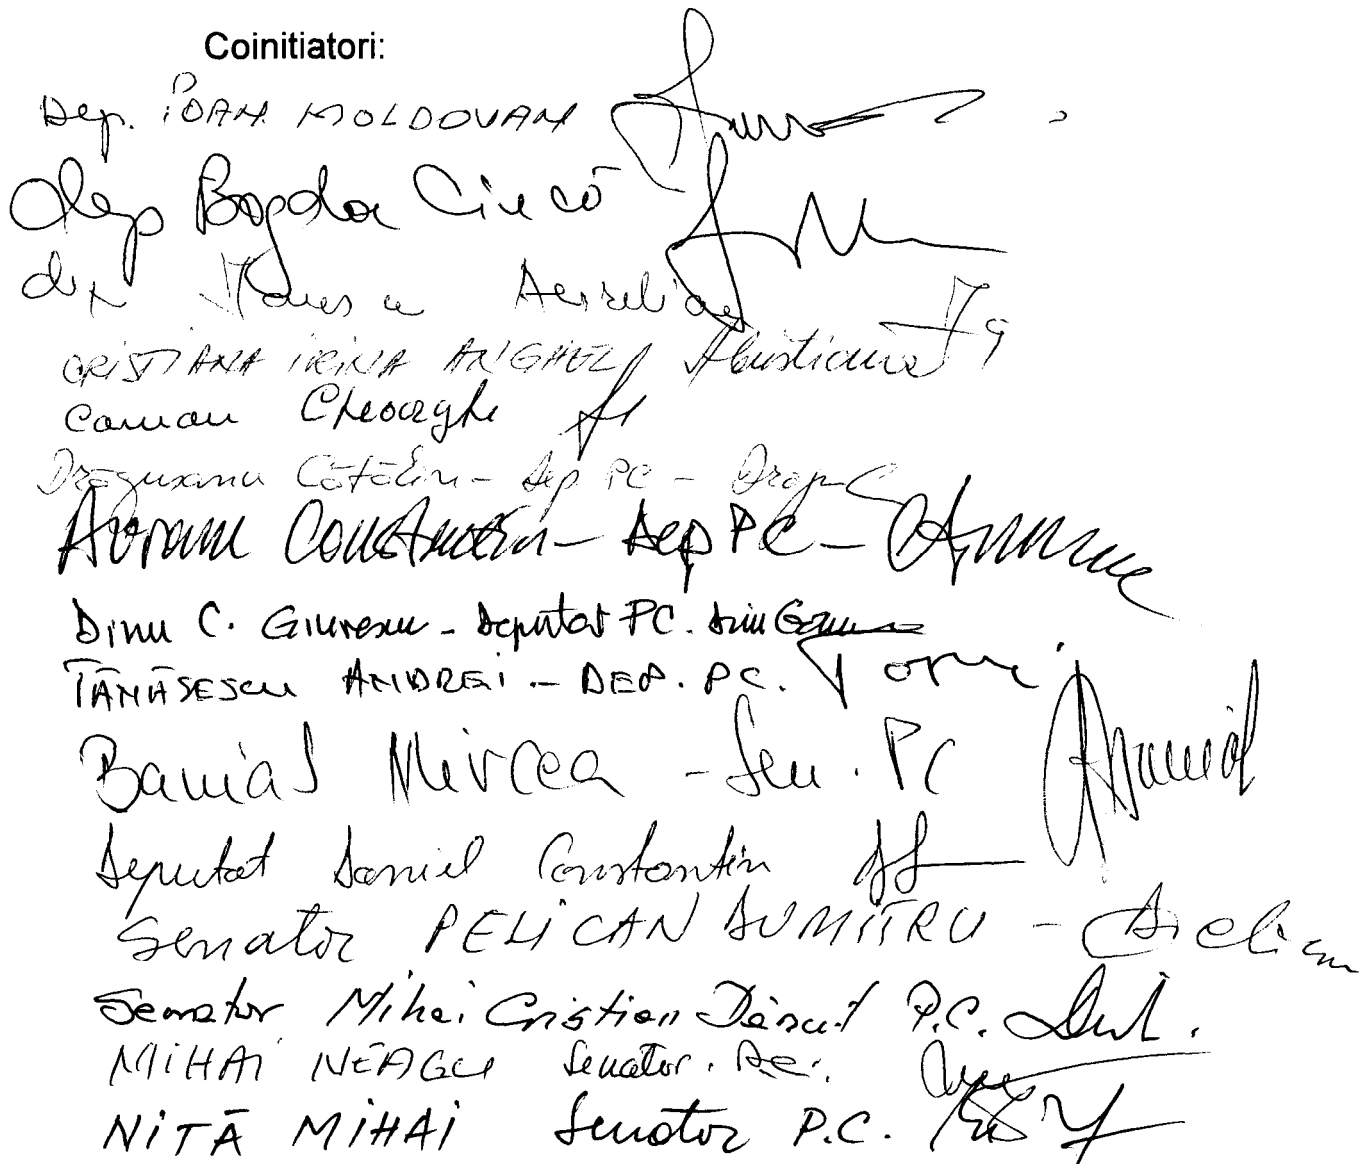 Coinitiatori:
Dep. IOAN MOLDOVAN
dep Bogdan Ciucă
dep Aurelian
CRISTIANA IRINA ANGHEL
Coman Gheorghe
Drăgușanu Cătălin - Dep PC -
Avram Constantin - Dep PC -
Dinu C. Giurescu - Deputat PC.
TĂNĂSESCU ANDREI - DEP. PC.
Banias Mircea - Sen. PC
Deputat Daniel Constantin
Senator PELICAN DUMITRU -
Senator Mihai Cristian Dănuț P.C.
MIHAI NEAGU Senator. P.C.
NIȚĂ MIHAI Senator P.C.